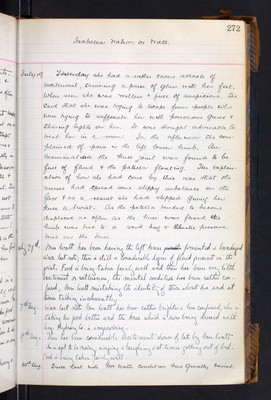 272
Isabella Watson or Wall.
July 19. Yesterday she had a rather severe attack of
excitement, receiving a piece of glass with her feet.
When seen she was restless & full of suspicions. She
said that she was trying to escape from people who
were trying to suffocate her with poisonous gases &
shining lights on her. It was thought advisable to
treat her in a room. In the afternoon she com-
plained of pain in the left lower limb. An
examination the knee joint was found to be
full of fluid & the patella floating. Her explan-
ation of how she had come by this was that the
nurses had spread some slippy substance on the
floor & as a result she had slipped giving her
knee a twist. As the patella tended to become
displaced as often as the knee was flexed the
limb was tied to a sand bag & elastic pressure
put on the knee.
July 27th. Mrs Watt has been having the left knee fomented & bandaged
since last note, there is still a considerable degree of fluid present in the
joint. Food is being taken fairly well and there has been very little
excitement or restlessness, the mental condition has been rather con-
fused, Mrs Watt mistaking the identity of those about her and at
times talking incoherently.
7th Aug. Since last note Mrs Watt has been rather brighter, less confused, she is
taking her food better and the knee which is now being treated with
is improving.
17th Aug. There has been considerable excitement shown of late by Mrs Watt
she is apt to be noisy, singing & laughing & at times getting out of bed.
Food is being taken fairly well.
30th Aug. Since last note Mrs Watts condition has greatly varied